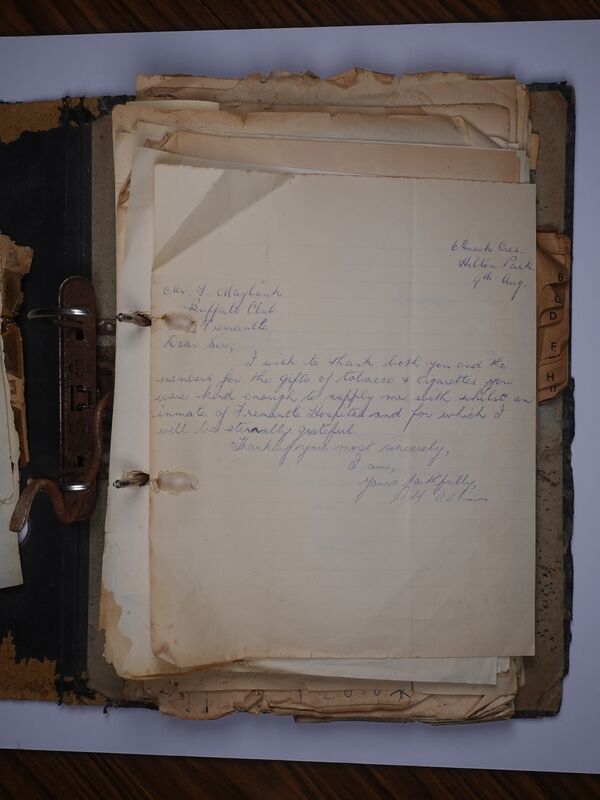 6 Cres.
Hilton Park
9th Aug.
Mr. F. Maybank
Buffalo Club
Fremantle
Dear Sir,
I wish to thank both you and the
members for the gifts of tobacco & cigarettes you
were kind enough to supply me with whilst an
inmate of Fremantle Hospital and for which I
will be eternally grateful.
Thanking you most sincerely,
I am,
Yours Faithfully,
B
C
D
F
H